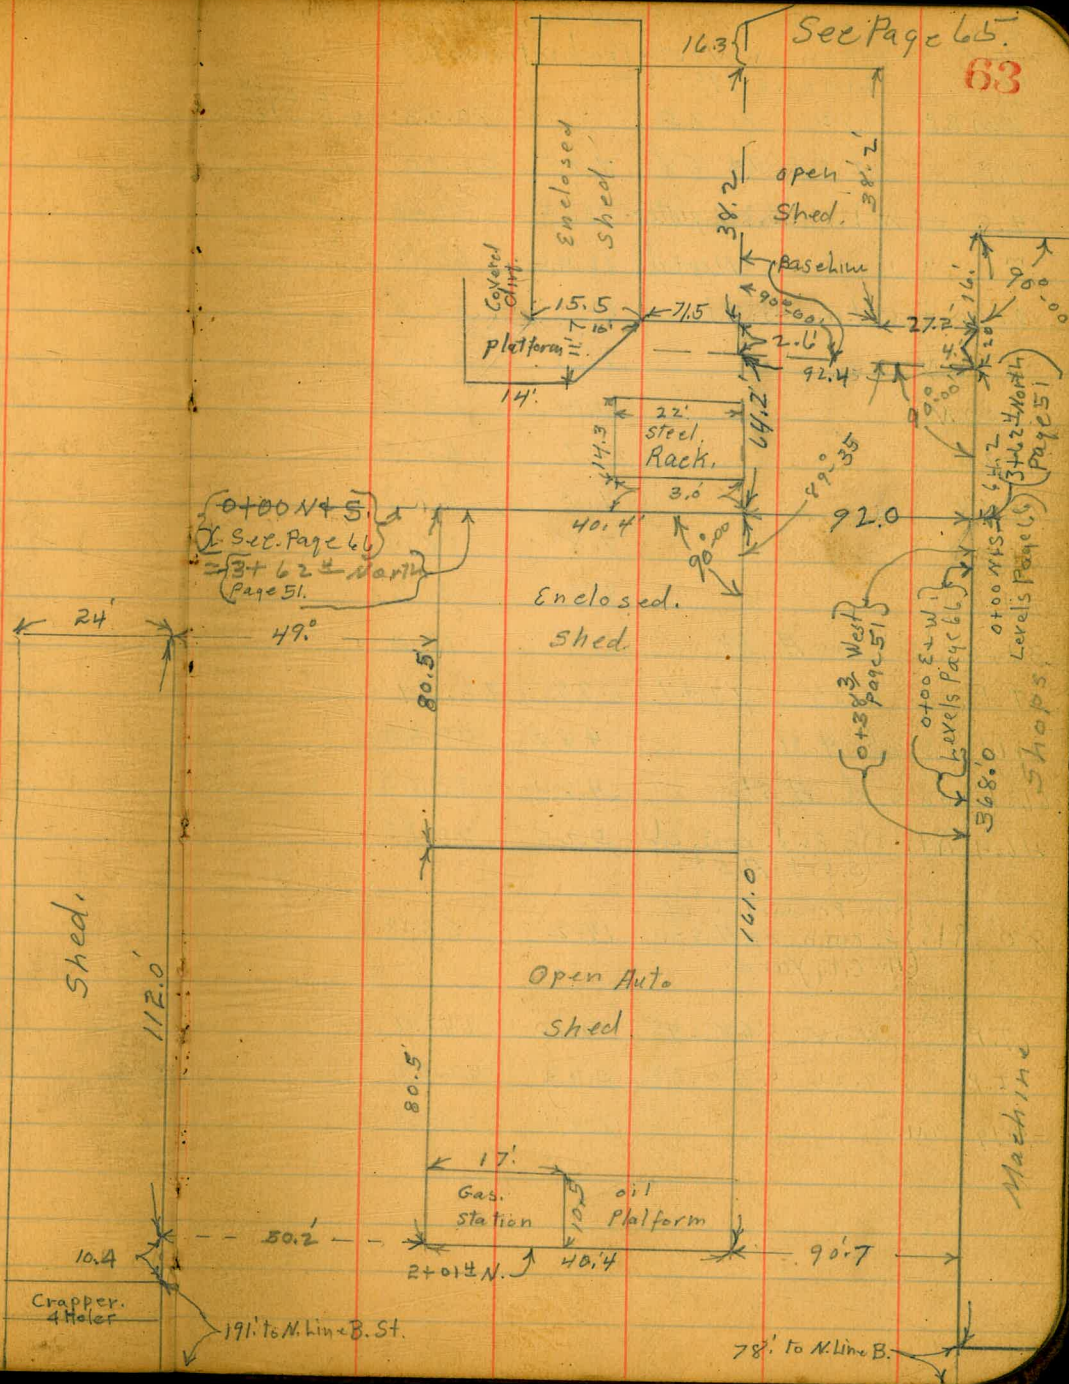 See Page 65.
63
16.3
Enclosed
shed.
38.2
open
Shed.
38.2'
Baseline
Covered
15.5
71.5
90°00'
27.2'
16.'
90°00'
Platform
11.7
16'
2.6'
92.4
20'
14'.
64.2'
22'
steel
Rack.
14.3
3.0'
89°35
64.2
(3+62⁴ North
Page 51)
0+00 N+S
See. Page 66
= 3+62⁴ North
Page 51.
40.4'
90°00
92.0
0+00 N+S
Levels Page 66
Enclosed.
Shed
24'
49.°
80.5
0+38³ West
Page 51
0+00 E+W.
Levels Page 66
368.0
Machine Shops.
Shed.
112.0'
161.0
Open Auto
Shed
80.5'
17'.
Gas.
Station
10.5
oil
Platform
50.2'
40.4
90.7
2+01⁴ N.
10.4
Crapper.
4 Holer
191'. to N. Line B. St.
78'. to N. Line B.